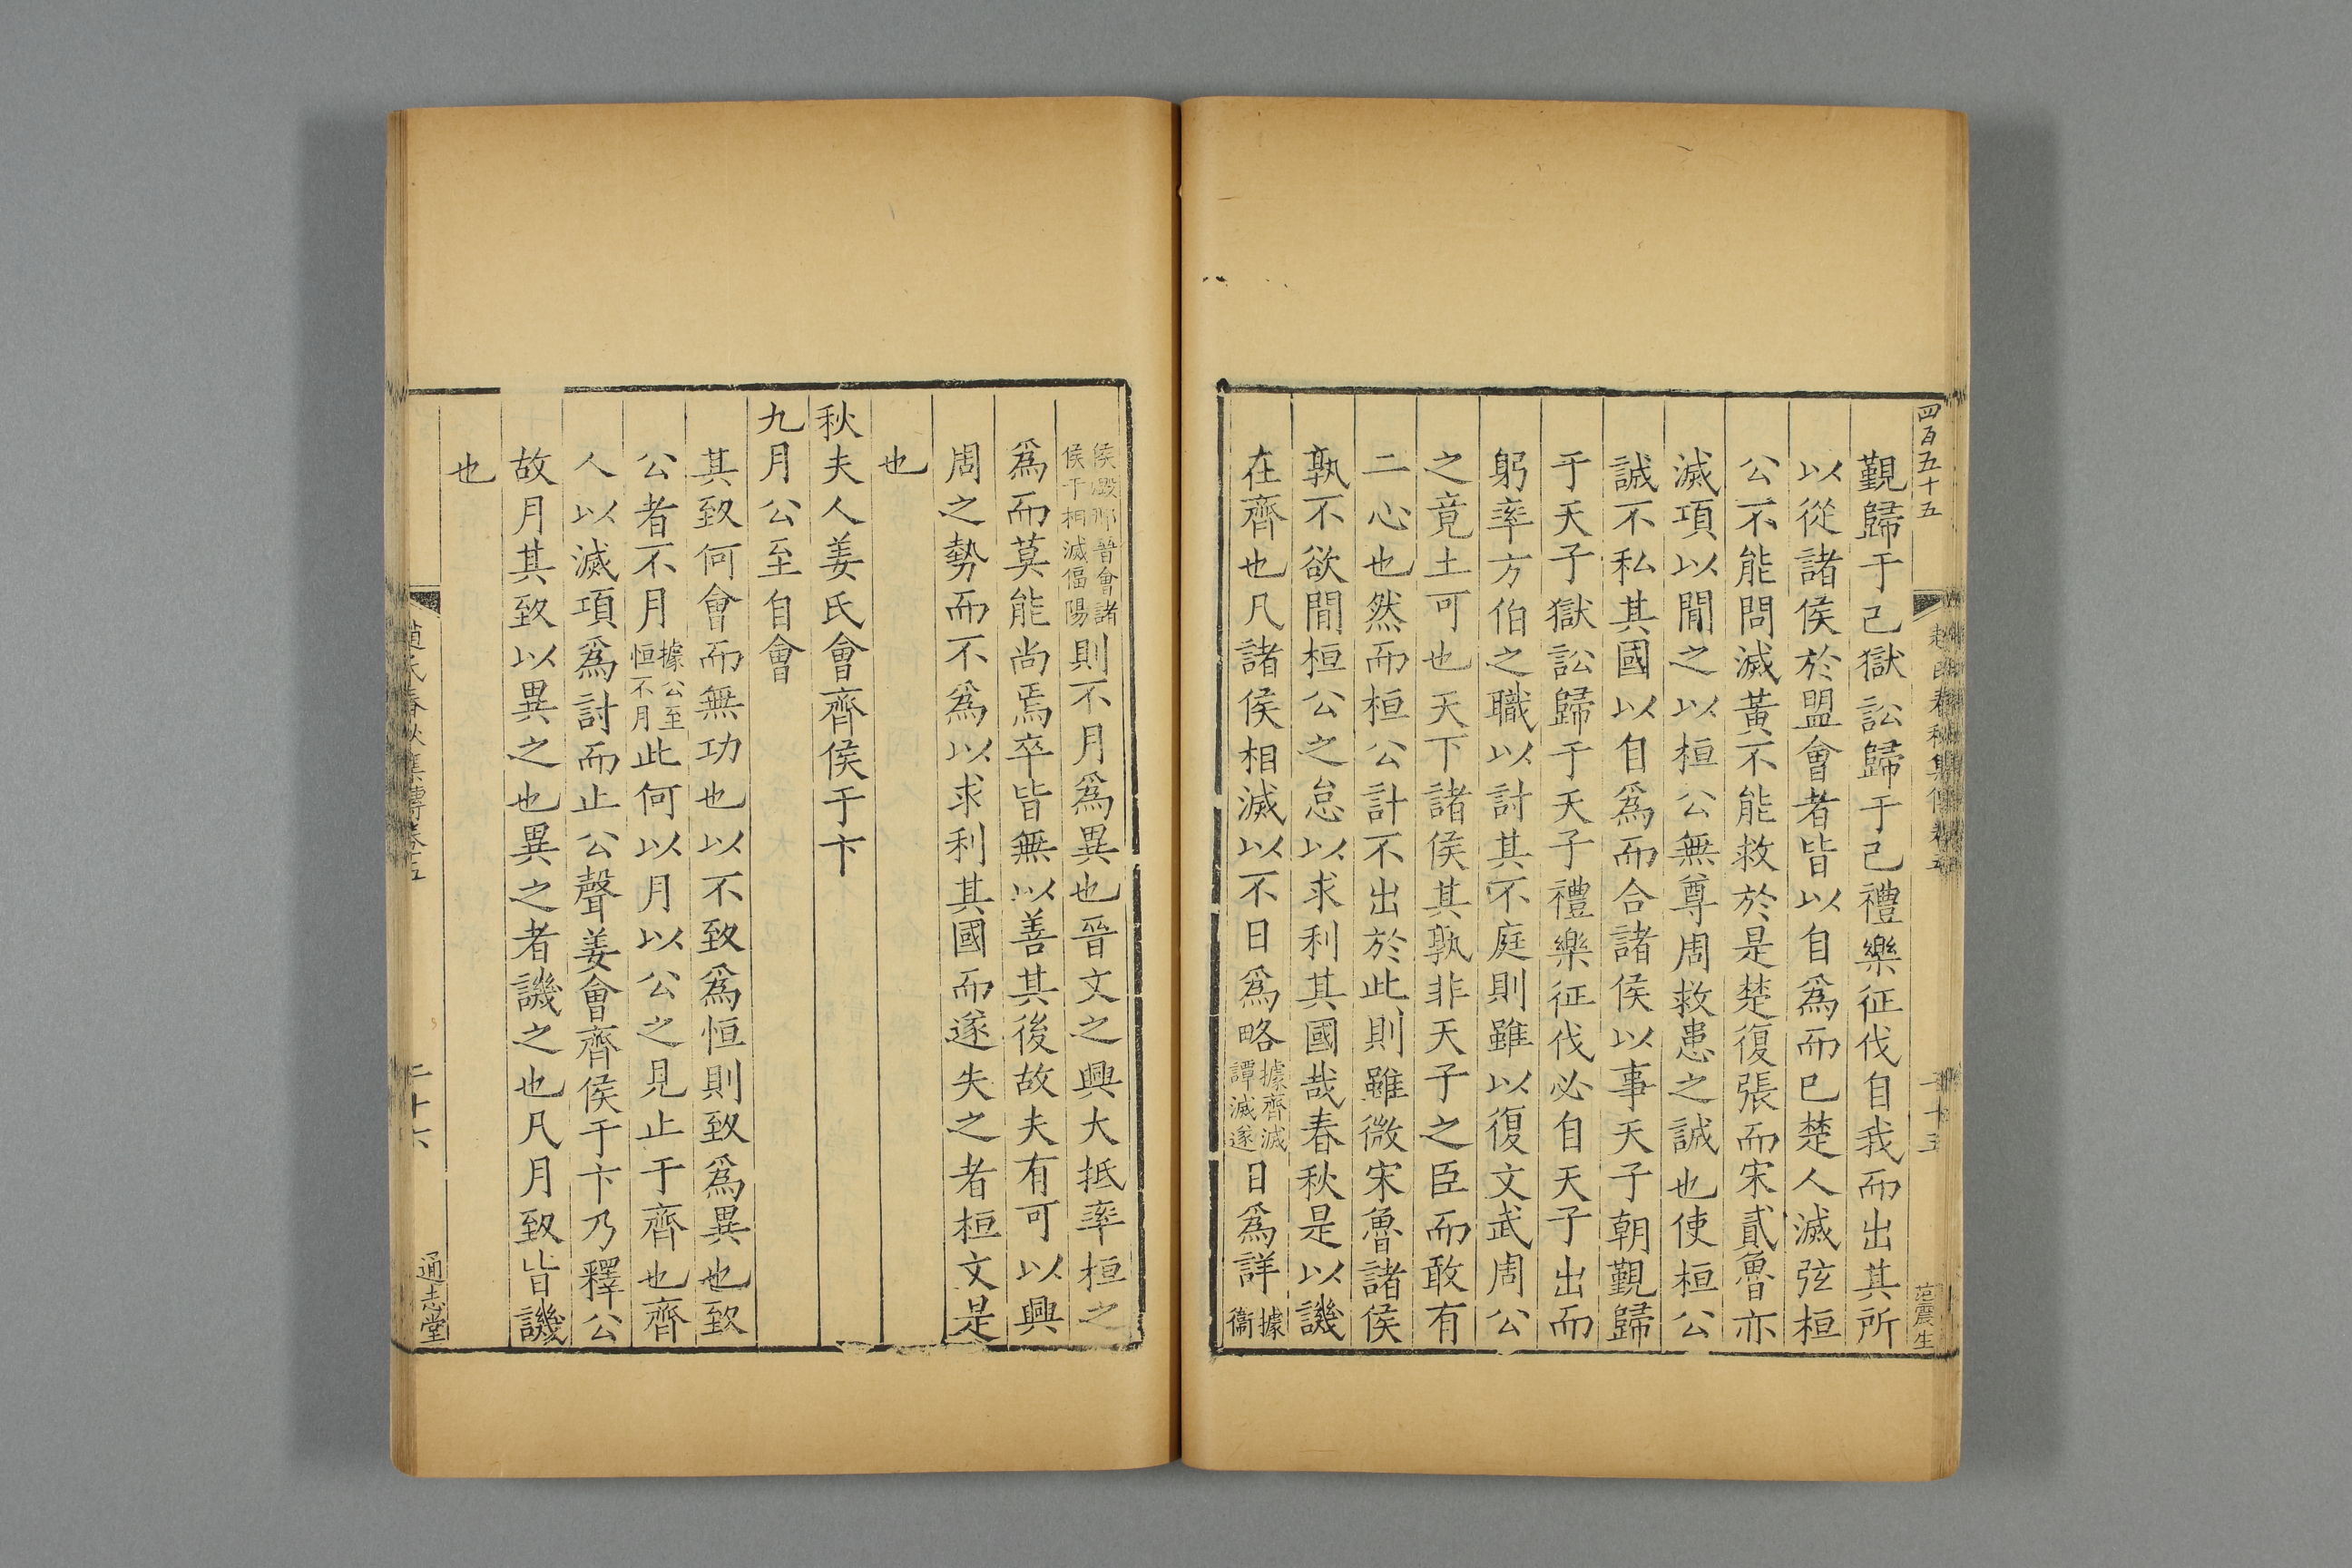 四百五十五
春秋集傳卷五
范震生
覲歸于己獄訟歸于己禮樂征伐自我而出其所
以從諸侯於盟會者皆以自爲而已楚人滅弦桓
公不能問滅黃不能救於是楚復張而宋貳魯亦
滅項以閒之以桓公無尊周救患之誠也使桓公
誠不私其國以自爲而合諸侯以事天子朝覲歸
于天子獄訟歸于天子禮樂征伐必自天子出而
躬率方伯之職以討其不庭則雖以復文武周公
之竟土可也天下諸侯其孰非天子之臣而敢有
二心也然而桓公計不出於此則雖微宋魯諸侯
孰不欲閒桓公之怠以求利其國哉春秋是以譏
在齊也凡諸侯相滅以不日爲略據齊滅譚滅遂日爲詳據衞
侯燬邢晉會諸侯于相滅偪陽則不月爲異也晉文之興大抵率桓之
爲而莫能尚焉卒皆無以善其後故夫有可以興
周之勢而不爲以求利其國而遂失之者桓文是
也
秋夫人姜氏會齊侯于卞
九月公至自會
其致何會而無功也以不致爲恒則致爲異也致
公者不月據公至恒不月此何以月以公之見止于齊也齊
人以滅項爲討而止公聲姜會齊侯于卞乃釋公
故月其致以異之也異之者譏之也凡月致皆譏
也
氏春秋集傳卷五
二十六
通志堂